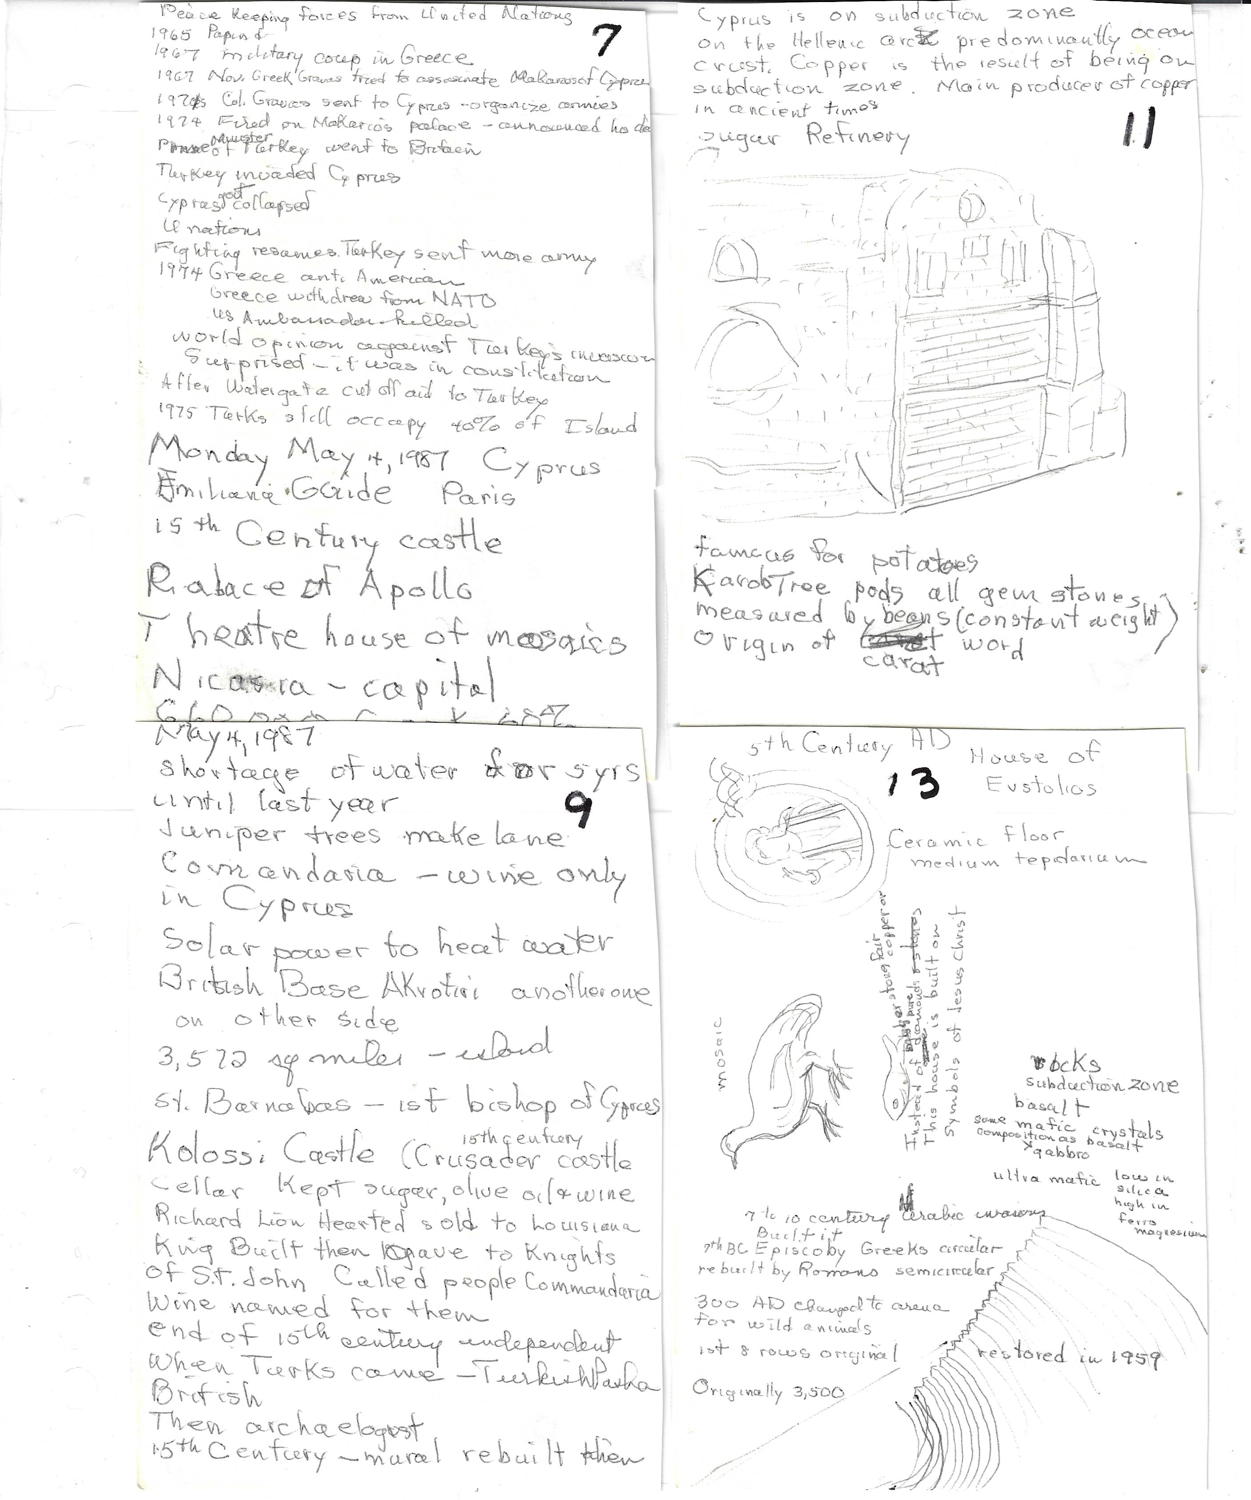 Peace Keeping forces from United Nations
7
1965 Papand
1967 military coup in Greece
1967 Nov. Greek Gravas tried to assasinate Makarios of Cyprus
1970s Col. Gravas sent to Cyprus - organize armies
1974 Fired on Makario's palace - announced he de
Prime Minister of Turkey went to Britain
Turkey invaded Cyprus
Cyprus govt collapsed
U nations
Fighting resumes. Turkey sent more army
1974 Greece anti American
Greece withdrew from NATO
US Ambassador killed
world opinion against Turkey's invasion
Surprised - it was in constitution
After Watergate cut off aid to Turkey
1975 Turks still occupy 40% of Island
Monday May 4, 1987 Cyprus
Emiliana Guide Paris
15th Century castle
Palace of Apollo
Theatre house of mosaics
Nicosia - capital
Cyprus is on subduction zone
on the Hellenic arc predominantly ocean
crust. Copper is the result of being on
subduction zone. Main producer of copper
in ancient times
11
Sugar Refinery
famous for potatoes
Karob Tree pods all gem stones
measured by beans (constant weight)
Origin of carat word
May 4, 1987
shortage of water for 5 yrs
until last year
9
Juniper trees make lane
Comandaria - wine only
in Cyprus
Solar power to heat water
British Base Akrotiri another one
on other side
3,572 sq miles - island
St. Barnabas - 1st bishop of Cyprus
15th century
Kolossi Castle (Crusader castle
Cellar Kept sugar, olive oil & wine
Richard Lion Hearted sold to Louisiana
King Built then gave to Knights
of St. John Called people Commandaria
Wine named for them
end of 15th century independent
when Turks came - Turkish Pasha
British
Then archaelogist
15th Century - mural rebuilt then
5th Century AD House of
Eustolios
13
Ceramic Floor
medium tepidarium
mosaic
Instead of
This house is built on
Symbols of Jesus Christ
rocks
subduction zone
basalt
some mafic crystals
composition as basalt
gabbro
ultra mafic low in
silica
high in
ferro
magnesium
7 to 10 century Arabic invasions
Built it
7th BC Episco by Greeks circular
rebuilt by Romans semicircular
300 AD changed to arena
for wild animals
1st 8 rows original
restored in 1959
Originally 3,500